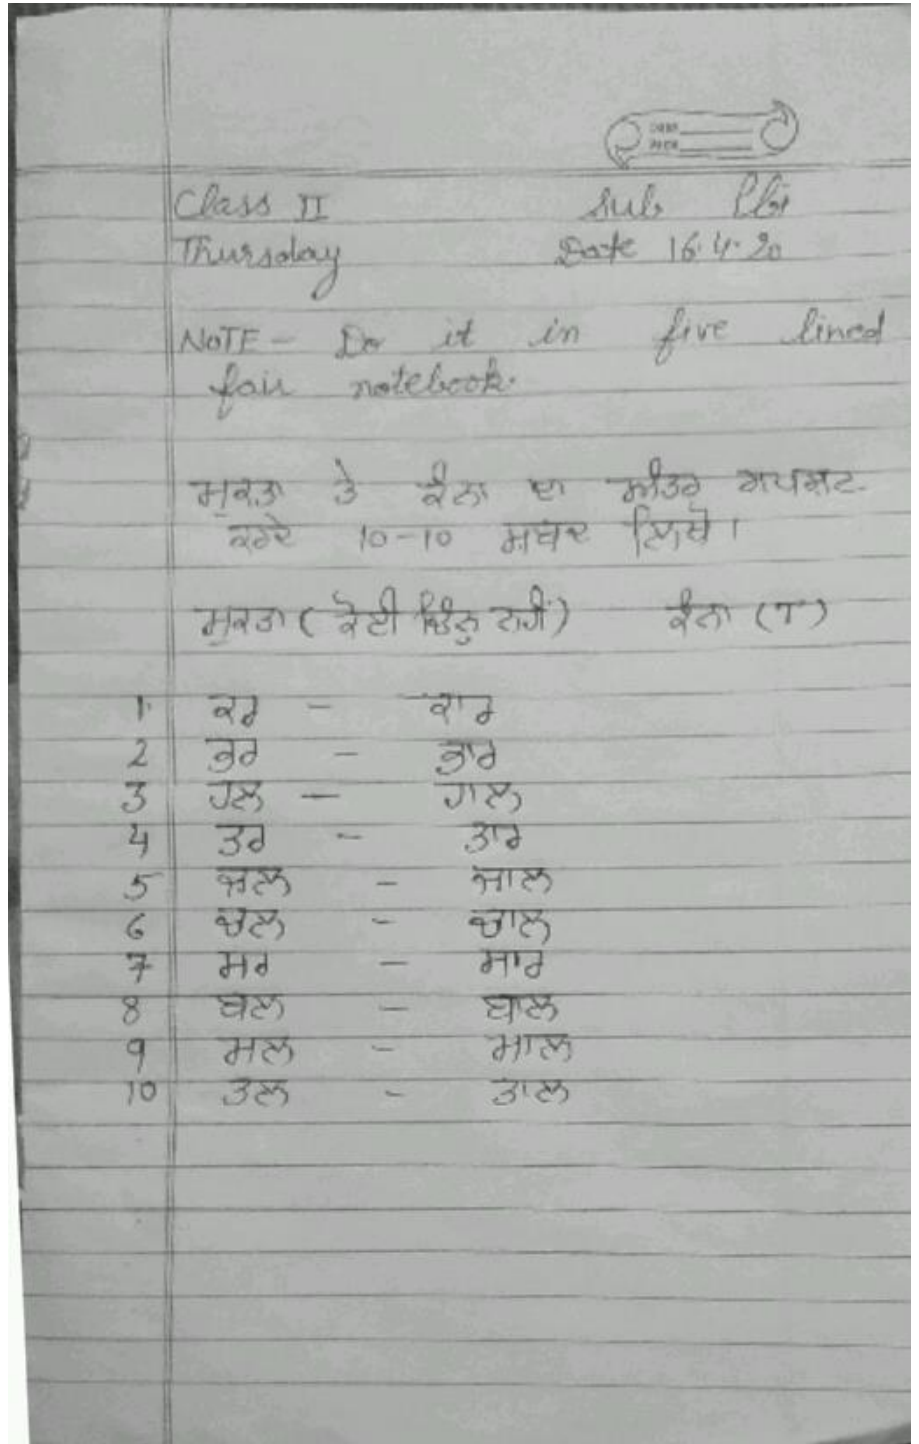 DATE
PAGE
Class II Sub Pbi
Thursday Date 16.4.20
NOTE - Do it in five lined
fair notebook.
ਮੁਕਤਾ ਤੇ ਕੰਨਾ ਦਾ ਅੰਤਰ ਸਪਸ਼ਟ
ਕਰਦੇ 10-10 ਸ਼ਬਦ ਲਿਖੋ।
ਮੁਕਤਾ (ਕੋਈ ਚਿੰਨ੍ਹ ਨਹੀਂ) ਕੰਨਾ (ਾ)
1 ਕਰ - ਕਾਰ
2 ਭਰ - ਭਾਰ
3 ਹਲ - ਹਾਲ
4 ਤਰ - ਤਾਰ
5 ਜਲ - ਜਾਲ
6 ਚਲ - ਚਾਲ
7 ਸਰ - ਸਾਰ
8 ਬਲ - ਬਾਲ
9 ਮਲ - ਮਾਲ
10 ਤਲ - ਤਾਲ